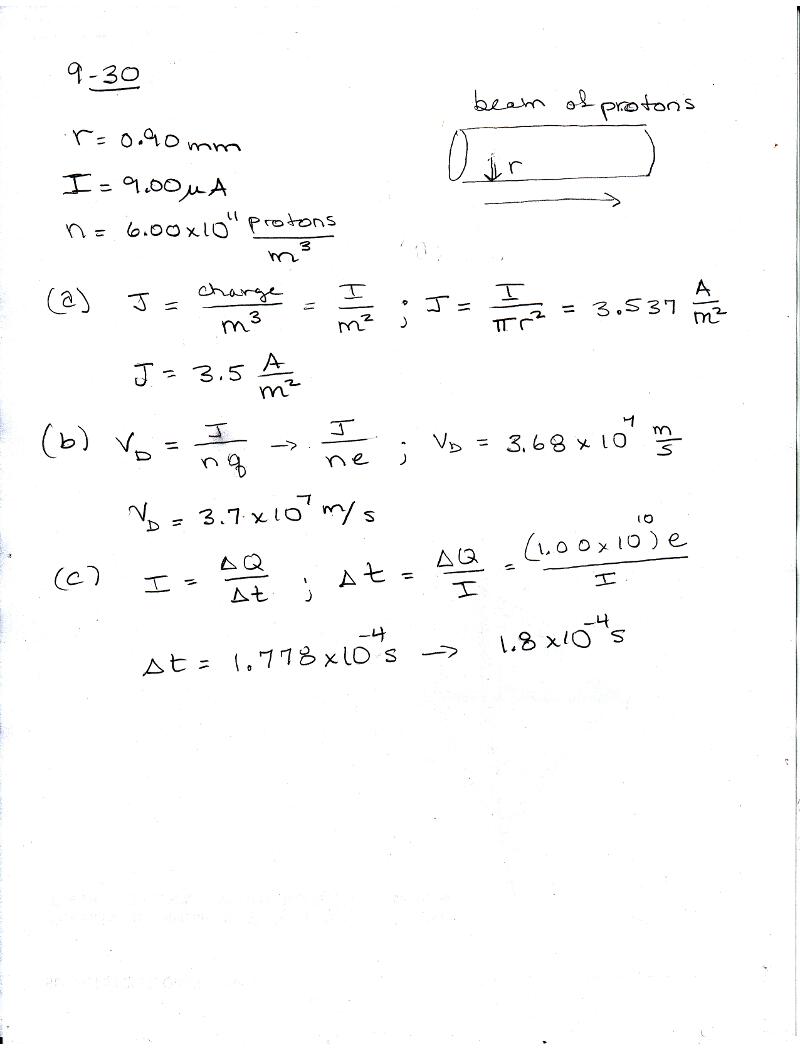 9-30
beam of protons
r
r = 0.90 mm
I = 9.00 μA
n = 6.00×10¹¹ protons/m³
(a) J = charge/m³ = I/m² ; J = I/πr² = 3.537 A/m²
J = 3.5 A/m²
(b) V_D = J/nq → J/ne ; V_D = 3.68 × 10⁷ m/s
V_D = 3.7 × 10⁷ m/s
(c) I = ΔQ/Δt ; Δt = ΔQ/I = (1.00×10¹⁰)e/I
Δt = 1.778×10⁻⁴ s → 1.8×10⁻⁴ s